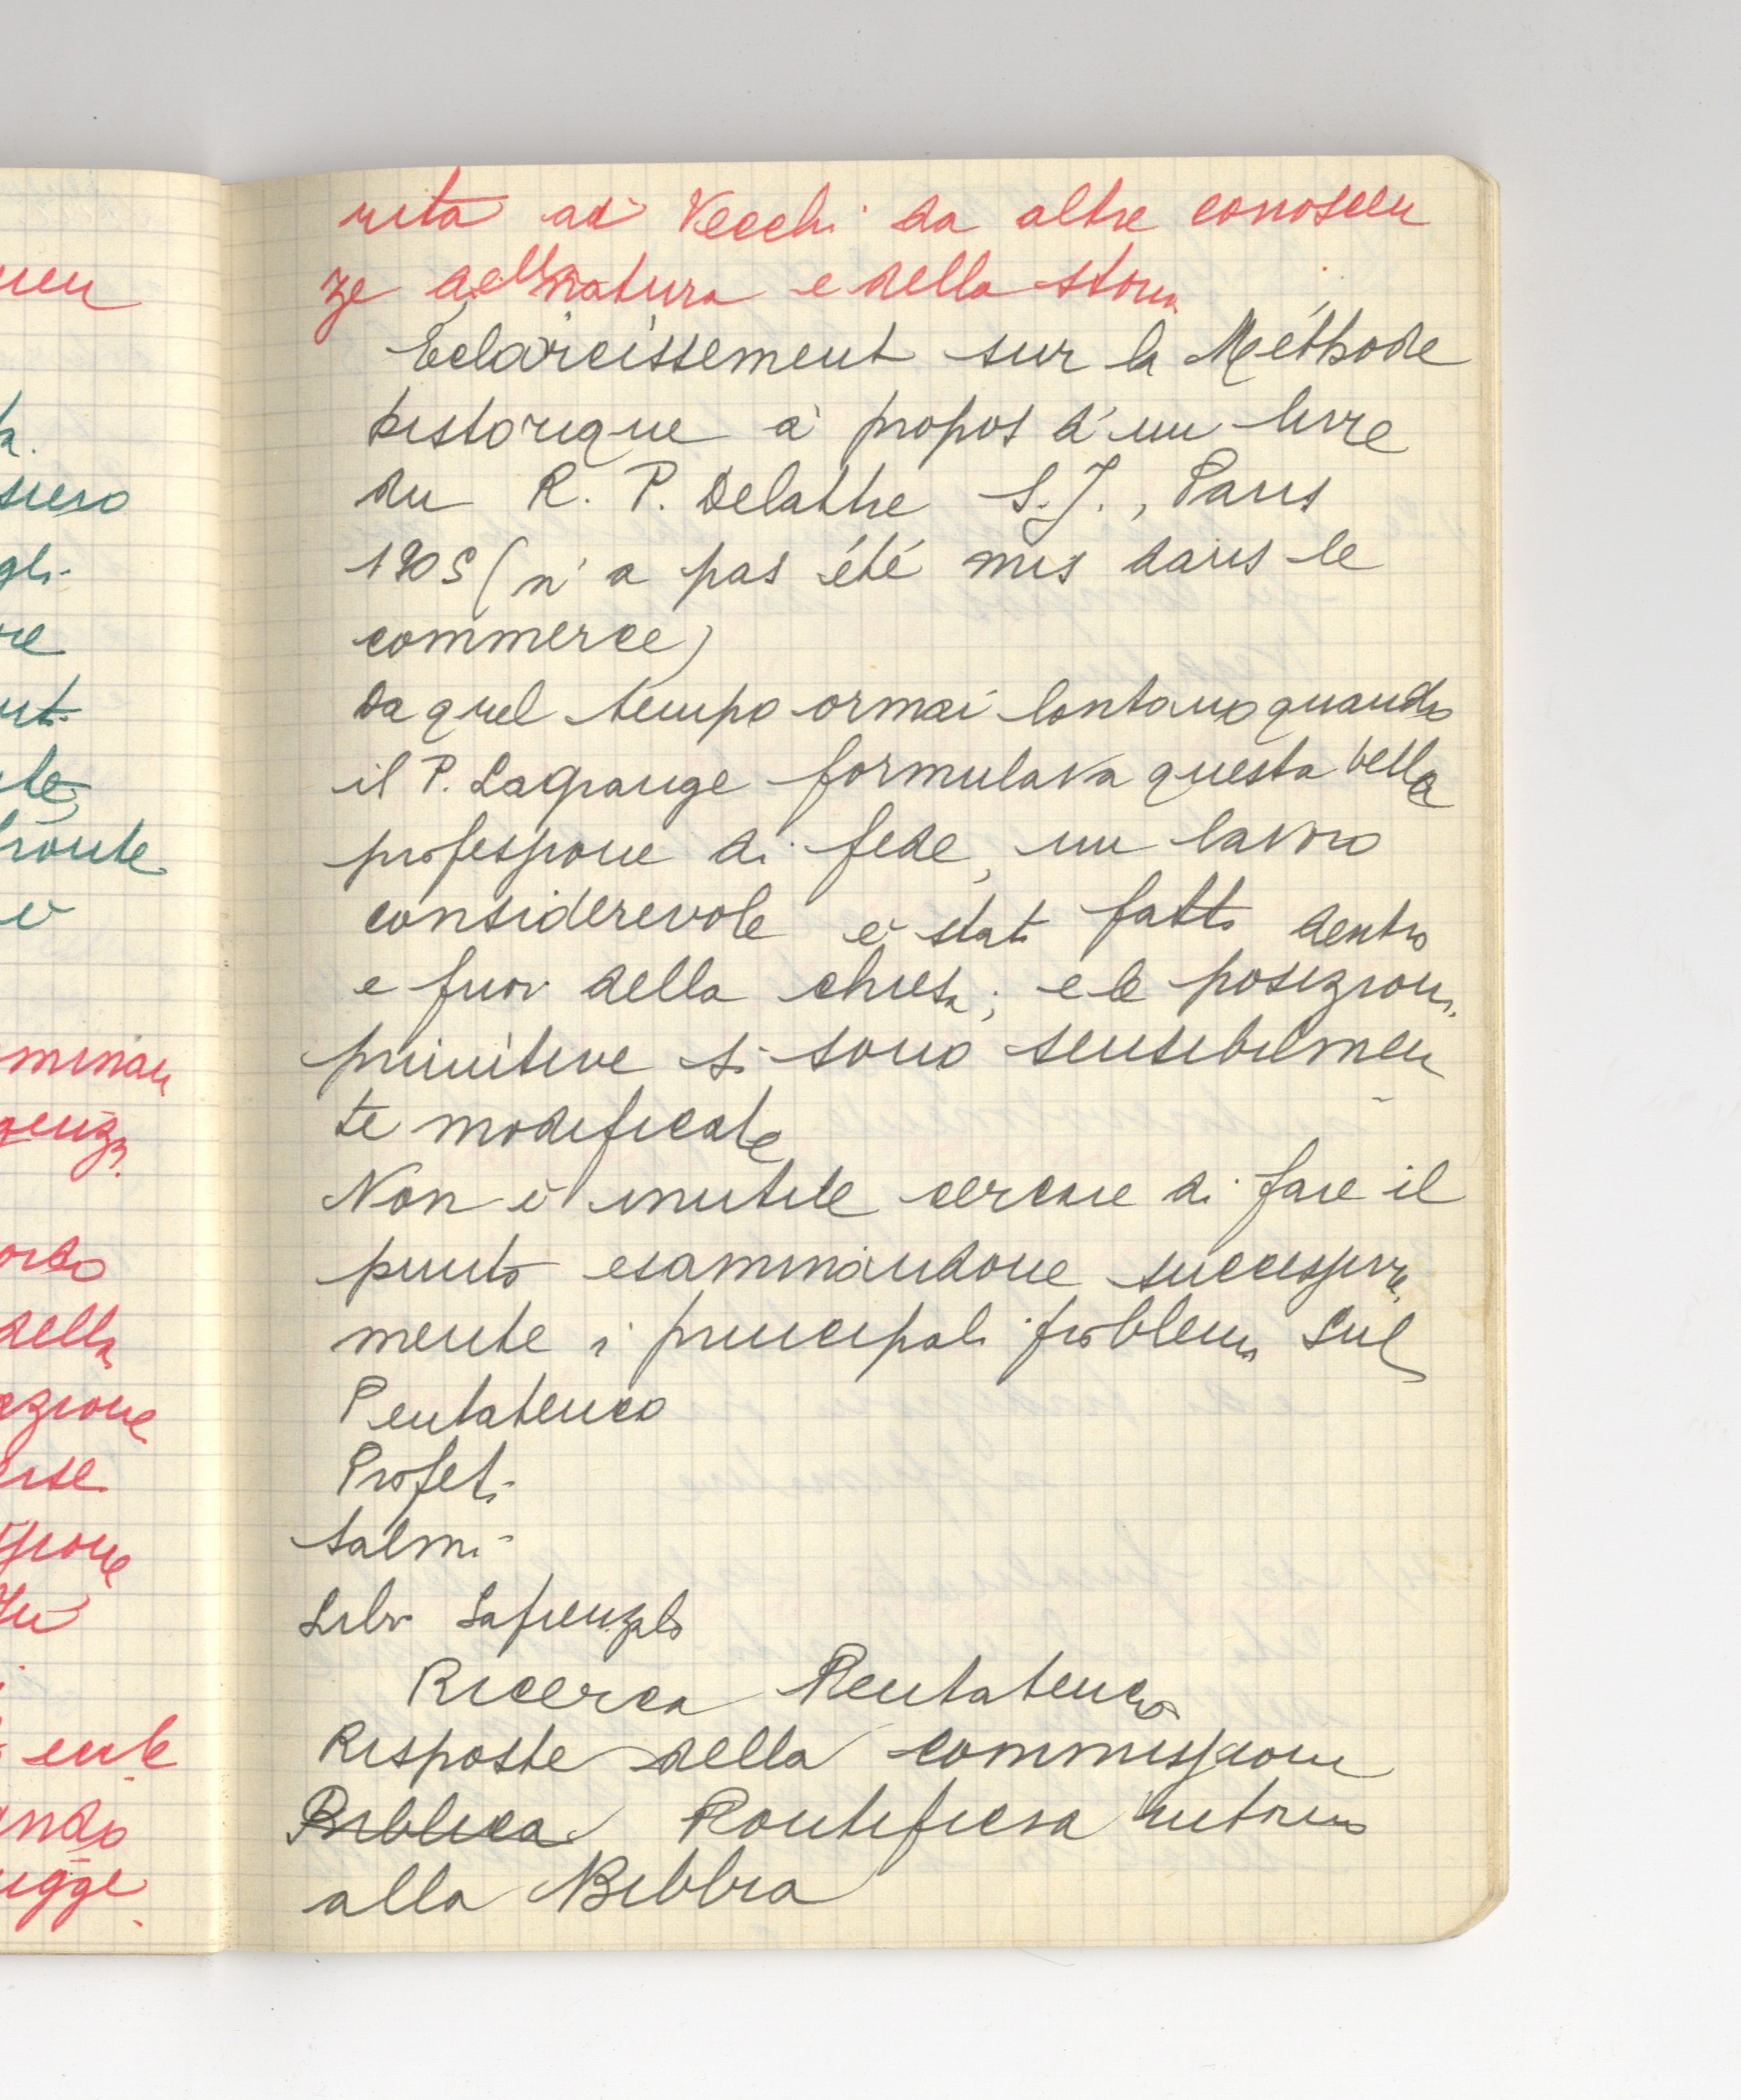 rità ad Vecchi da altre conoscen
ze della natura e della storia
Éclaircissement sur la Méthode
historique à propos d'un livre
du R. P. Delattre S.J., Paris
1905 (n'a pas été mis dans le
commerce)
Da quel tempo ormai lontano quando
il P. Lagrange formulava questa bella
professione di fede, un lavoro
considerevole è stato fatto dentro
e fuori della chiesa; e le posizioni
primitive si sono sensibilmen
te modificate
Non è inutile cercare di fare il
punto esaminandone successiva
mente i principali problemi sul
Pentateuco
Profeti
Salmi
Libri Sapienziali
Ricerca Pentateuco
Risposte della commissione
Biblica Pontificia intorno
alla Bibbia
uen
ta.
siero
gli
re
nti
te
fronte
è
minan
genza
ordo
della
azione
rse
ssione
ente
ando
ugge